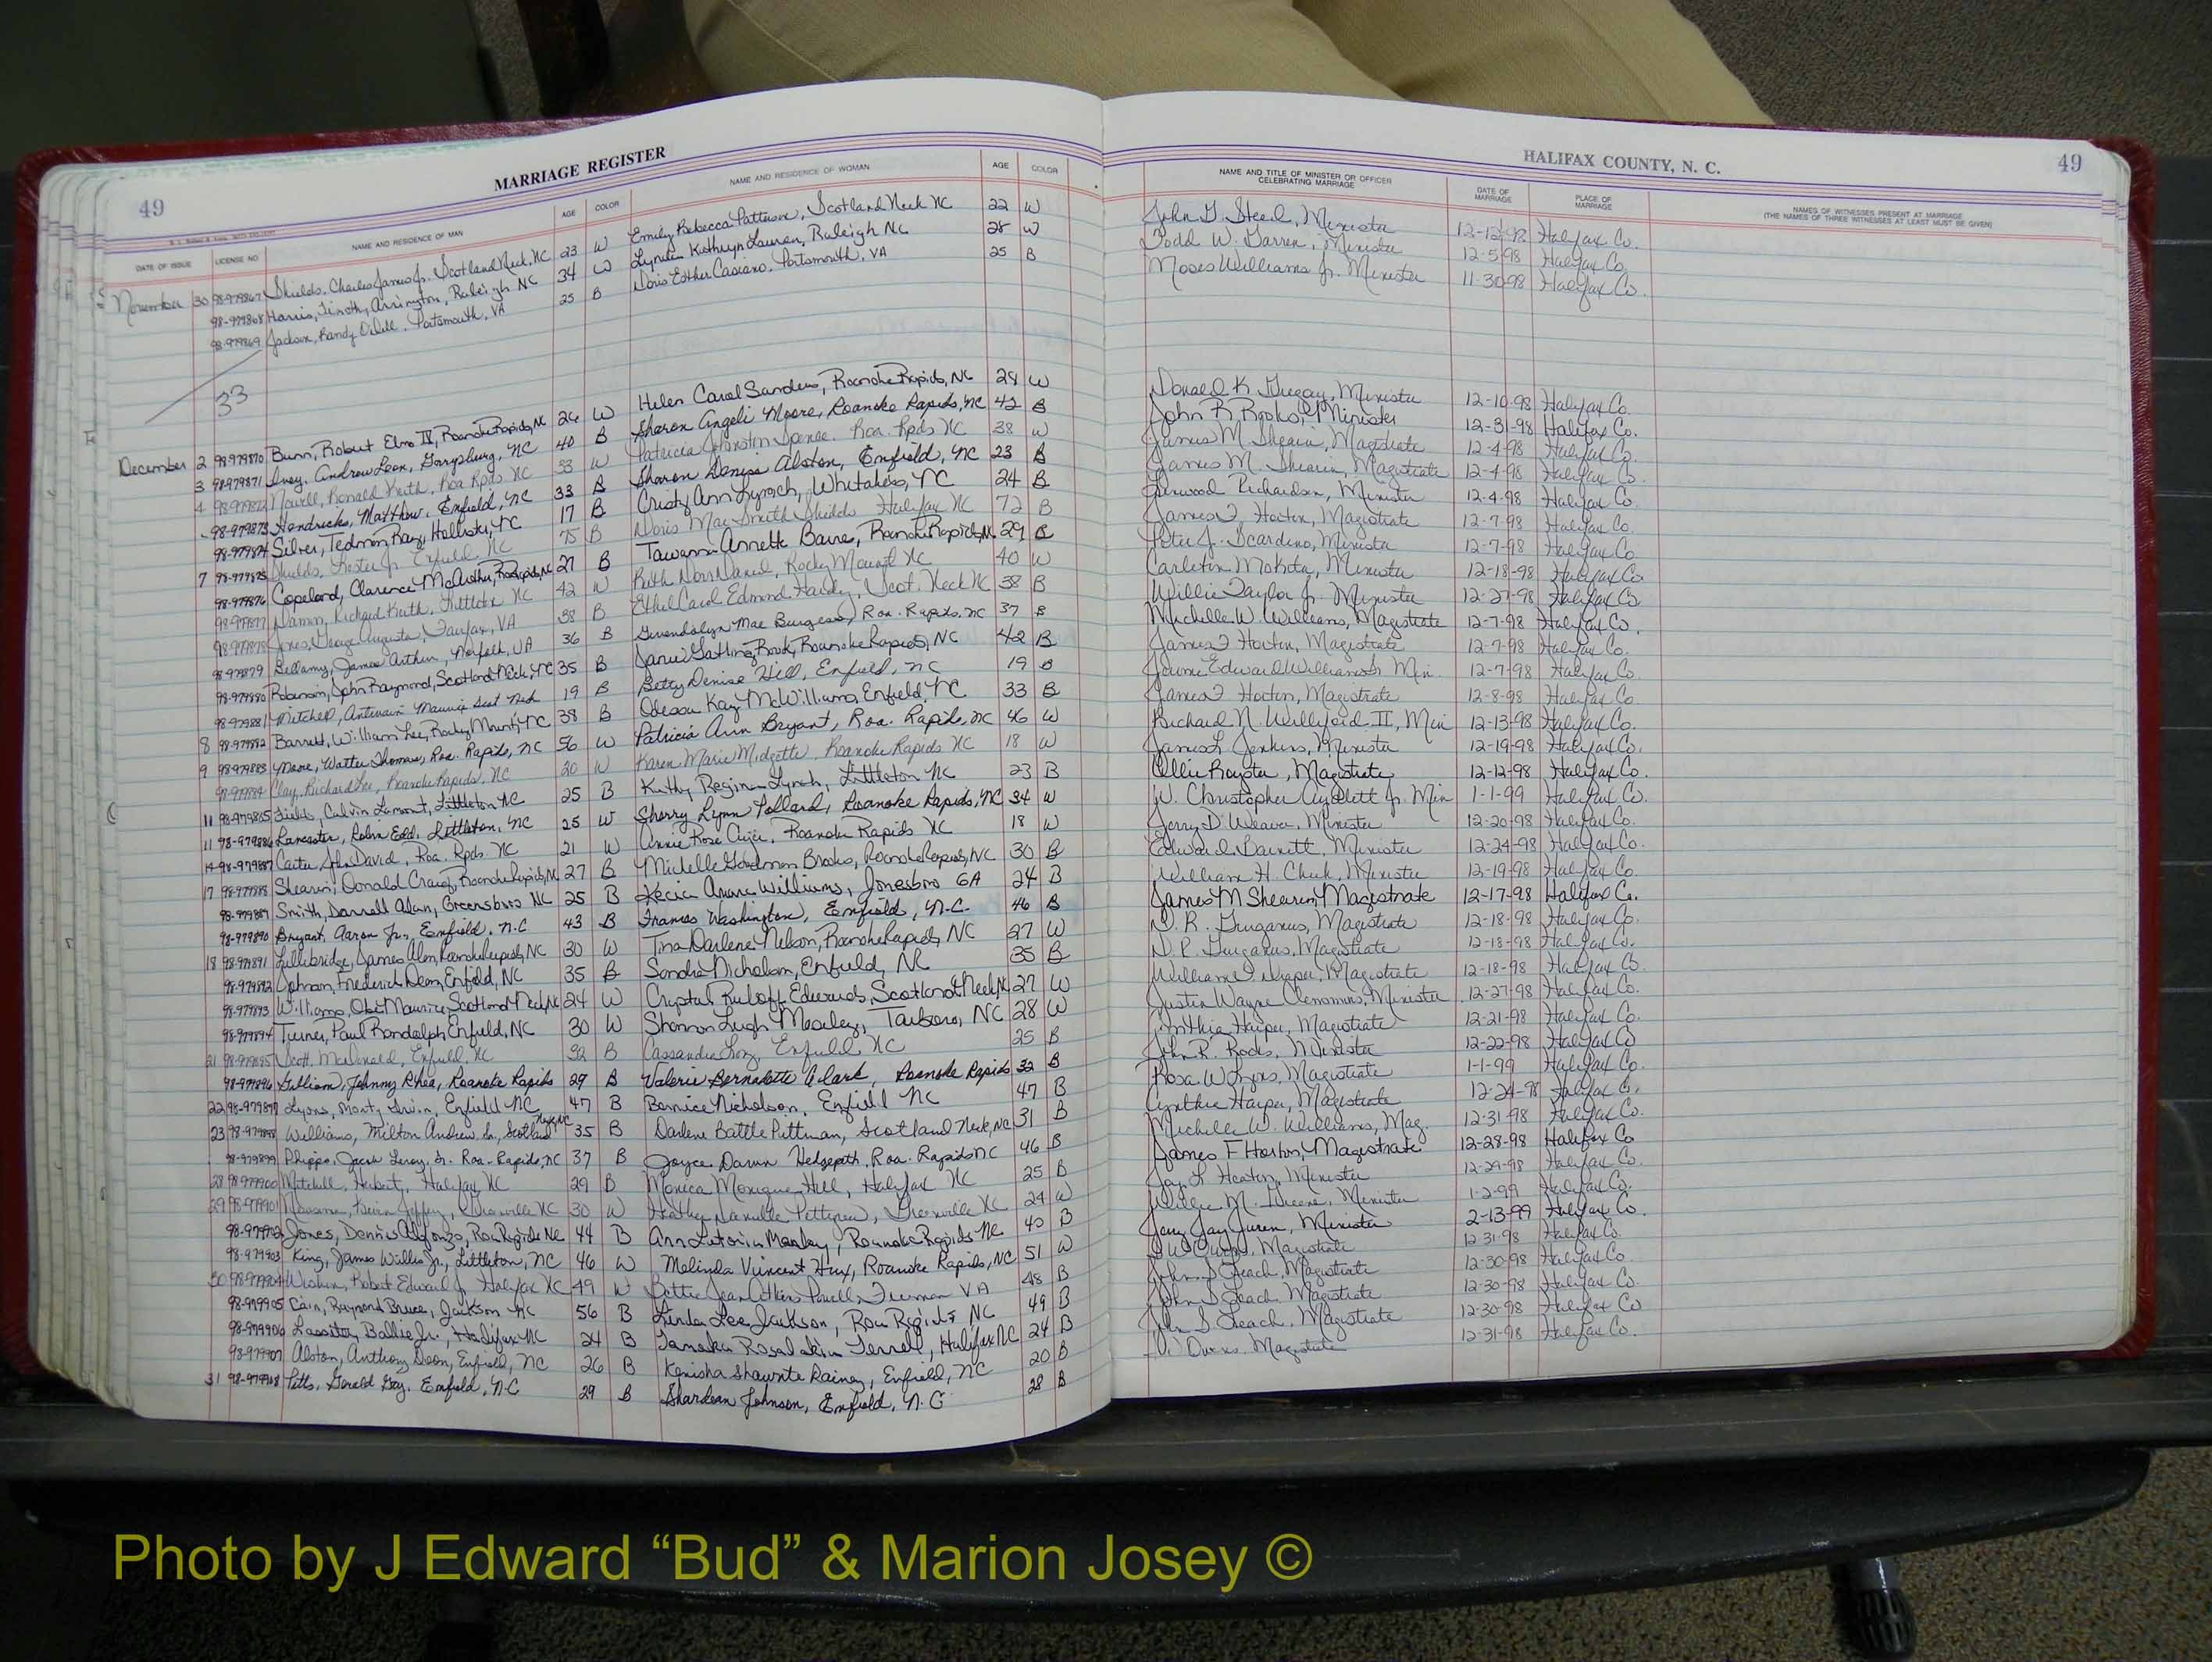 MARRIAGE REGISTER
HALIFAX COUNTY, N. C.
49
49
DATE OF ISSUE LICENSE NO NAME AND RESIDENCE OF MAN AGE COLOR NAME AND RESIDENCE OF WOMAN AGE COLOR NAME AND TITLE OF MINISTER OR OFFICER CELEBRATING MARRIAGE DATE OF MARRIAGE PLACE OF MARRIAGE NAMES OF WITNESSES PRESENT AT MARRIAGE (THE NAMES OF THREE WITNESSES AT LEAST MUST BE GIVEN)
November 30 98-979867 Shields, Charles James Jr. Scotland Neck, NC 23 W Emily Rebecca Patterson, Scotland Neck NC 22 W John G. Steed, Minister 12-12-98 Halifax Co.
98-979868 Harris, Timothy Arrington, Raleigh NC 34 W Kathryn Lauren, Raleigh NC 28 W Todd W. Garren, Minister 12-5-98 Halifax Co.
98-979869 Jackson, Randy Odell. Portsmouth, VA 25 B Doris Esther Casiano, Portsmouth, VA 25 B Moses Williams Jr. Minister 11-30-98 Halifax Co.
33
December 2 98-979870 Bunn, Robert Elmo IV, Roanoke Rapids, NC 26 W Helen Carol Sanders, Roanoke Rapids, NC 24 W Donald K. Minister 12-10-98 Halifax Co.
3 98-979871 Ivey, Andrew Leon, Garysburg, NC 40 B Sharon Angeli Moore, Roanoke Rapids, NC 42 B John R. Rooks, Minister 12-31-98 Halifax Co.
4 98-979872 Ronald Keith, Roa Rpds NC 53 W Patricia Johnston Spence. Roa. Rpds NC 38 W James M. Shearin, Magistrate 12-4-98 Halifax Co.
98-979873 Hendricks, Matthew, Enfield, NC 33 B Sharon Denise Alston, Enfield, NC 23 B James M. Shearin, Magistrate 12-4-98 Halifax Co.
98-979874 Silver, Tedmon Ray, Hollister, NC 17 B Cristy Ann Lynch, Whitakers, NC 24 B Linwood Richardson, Minister 12-4-98 Halifax Co.
7 98-979875 Shields, Lester Jr. Enfield NC 75 B Doris Mae Smith Shields Halifax NC 72 B James F. Horton, Magistrate 12-7-98 Halifax Co.
98-979876 Copeland, Clarence McArthur, Roa Rapids, NC 27 B Tawanna Annette Barre, Roanoke Rapids, NC 29 B Peter J. Scardino, Minister 12-7-98 Halifax Co.
98-979877 Richard Keith, Littleton NC 42 W Ruth Rocky Mount NC 40 W Carleton Minister 12-18-98 Halifax Co.
98-979878 Jones, George Augusta, Fairfax, VA 38 B Ethel Carol Edmond Hardy, Scot. Neck NC 38 B Willie Taylor Jr. Minister 12-27-98 Halifax Co.
98-979879 Bellamy, James Arthur, Norfolk, VA 36 B Gwendolyn Mae Burgess, Roa. Rapids, NC 37 B Michelle W. Williams, Magistrate 12-7-98 Halifax Co.
98-979880 Robinson, John Raymond, Scotland Neck, NC 35 B Janie Gatling Rook, Roanoke Rapids, NC 42 B James F. Horton, Magistrate 12-7-98 Halifax Co.
98-979881 Mitchell, Antwain Maurice Scot Neck 19 B Betty Denise Hill, Enfield, NC 19 B Edward Williams Jr. Min. 12-7-98 Halifax Co.
8 98-979882 Barrett, William Lee, Rocky Mount, NC 38 B Odessa Kay McWilliams, Enfield NC 33 B James F. Horton, Magistrate 12-8-98 Halifax Co.
9 98-979883 Moore, Walter Thomas, Roa. Rapids, NC 56 W Patricia Ann Bryant, Roa. Rapids, NC 46 W Richard N. Williford II, Min 12-13-98 Halifax Co.
98-979884 Clay, Richard Lee, Roanoke Rapids, NC 20 W Karen Marie Midgette, Roanoke Rapids NC 18 W James L. Jenkins, Minister 12-19-98 Halifax Co.
11 98-979885 Fields, Calvin Lamont, Littleton NC 25 B Kathy Regina Lynch, Littleton NC 23 B Ollie Royster, Magistrate 12-12-98 Halifax Co.
11 98-979886 Lancaster, Robin Edd, Littleton, NC 25 W Sherry Lynn Pollard, Roanoke Rapids, NC 34 W W. Christopher Aydlett Jr. Min 1-1-99 Halifax Co.
14 98-979887 Carter, John David, Roa. Rpds. NC 21 W Annie Rose Roanoke Rapids NC 18 W Jerry D. Weaver, Minister 12-20-98 Halifax Co.
17 98-979888 Shearin, Donald Craig, Roanoke Rapids, NC 27 B Michelle Goodman Brooks, Roanoke Rapids, NC 30 B Edward Barnett, Minister 12-24-98 Halifax Co.
98-979889 Smith, Darrell Alan, Greensboro NC 25 B Kecia Williams, Jonesboro GA 24 B William H. Cheek, Minister 12-19-98 Halifax Co.
98-979890 Bryant, Aaron Jr., Enfield, N.C 43 B Frances Washington, Enfield, N.C. 46 B James M Shearin, Magistrate 12-17-98 Halifax Co.
18 98-979891 Lillibridge, James Alan, Roanoke Rapids, NC 30 W Tina Darlene Nelson, Roanoke Rapids, NC 27 W D. R. Gurganus, Magistrate 12-18-98 Halifax Co.
98-979892 Frederick Deon, Enfield, NC 35 B Sondra Nicholson, Enfield, NC 35 B D. R. Gurganus, Magistrate 12-18-98 Halifax Co.
98-979893 Williams, Obie Maurice, Scotland Neck, NC 24 W Crystal Ruloff Edwards, Scotland Neck, NC 27 W William F. Draper, Magistrate 12-18-98 Halifax Co.
98-979894 Turner, Paul Randolph, Enfield, NC 30 W Shannon Leigh Moseley, Tarboro, NC 28 W Justin Wayne Clemmons, Minister 12-27-98 Halifax Co.
21 98-979895 Scott, McDonald, Enfield, NC 32 B Cassandra Enfield NC 25 B Cynthia Harper, Magistrate 12-21-98 Halifax Co.
98-979896 Gilliam, Johnny Rhea, Roanoke Rapids 29 B Valerie Bernadette Clark, Roanoke Rapids 32 B John R. Rooks, Minister 12-22-98 Halifax Co
22 98-979897 Lyons, Monty Enfield NC 47 B Bernice Nicholson, Enfield NC 47 B Rosa W. Lyons, Magistrate 1-1-99 Halifax Co.
23 98-979898 Williams, Milton Andrew Sr., Scotland Neck, NC 35 B Darlene Battle Pittman, Scotland Neck, NC 31 B Cynthia Harper, Magistrate 12-24-98 Halifax Co.
98-979899 Phipps, Jacob Leroy, Sr. Roa. Rapids, NC 37 B Joyce Dawn Hedgepeth, Roa. Rapids NC 46 B Michelle W. Williams, Mag. 12-31-98 Halifax Co.
28 98-979900 Mitchell, Herbert, Halifax NC 29 B Monica Monique Hill, Halifax NC 25 B James F Horton, Magistrate 12-28-98 Halifax Co
29 98-979901 Kevin Jeffrey, Greenville NC 30 W Heather Danielle Pettipaw, Greenville NC 24 W Jay L. Heaton, Minister 12-29-98 Halifax Co.
98-979902 Jones, Dennis Alfonzo, Roa Rapids NC 44 B Ann Letonia Manley, Roanoke Rapids NC 40 B Willie M. Greene, Minister 1-2-99 Halifax Co.
98-979903 King, James Willis Jr., Littleton, NC 46 W Melinda Vincent Hux, Roanoke Rapids, NC 51 W Jerry Jay Minister 2-13-99 Halifax Co.
30 98-979904 Robert Edward Jr. Halifax NC 49 W Bettie Jean Atkins Powell, Freeman VA 48 B Magistrate 12-31-98 Halifax Co.
98-979905 Cain, Raymond Bruce, Jackson NC 56 B Linda Lee Jackson, Roa Rapids, NC 49 B John S Leach, Magistrate 12-30-98 Halifax Co
98-979906 Lassiter, Ballie Jr., Halifax NC 24 B Tameka Terrell, Halifax NC 24 B John S Leach, Magistrate 12-30-98 Halifax Co.
98-979907 Alston, Anthony Deon, Enfield, NC 26 B Kenisha Shawnte Rainey, Enfield, NC 20 B John S Leach, Magistrate 12-30-98 Halifax Co
31 98-979908 Pitts, Gerald Gay. Enfield, N.C 29 B Shardean Johnson, Enfield, N.C 28 B Owens Magistrate 12-31-98 Halifax Co.
Photo by J Edward “Bud” & Marion Josey ©